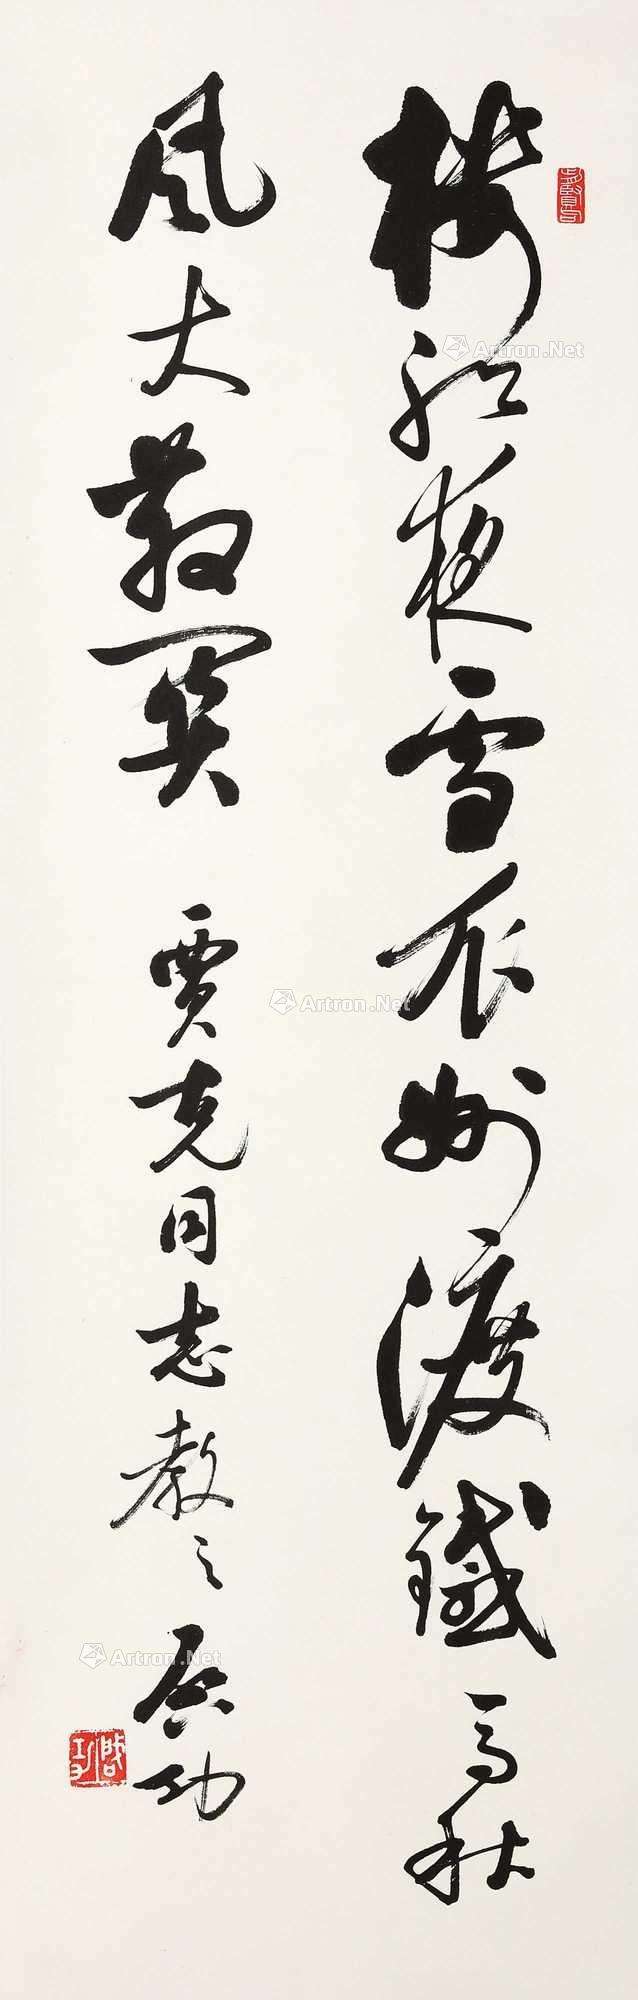 楼船夜雪瓜州渡铁马秋
风大散关
贾克同志教之
启功
启功
Artron.Net
Artron.Net
Artron.Net
Artron.Net